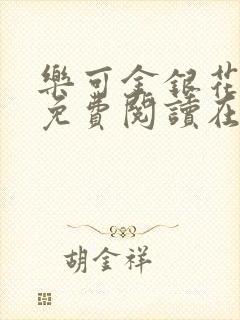 樂可金銀花
免費閱讀在
胡金祥